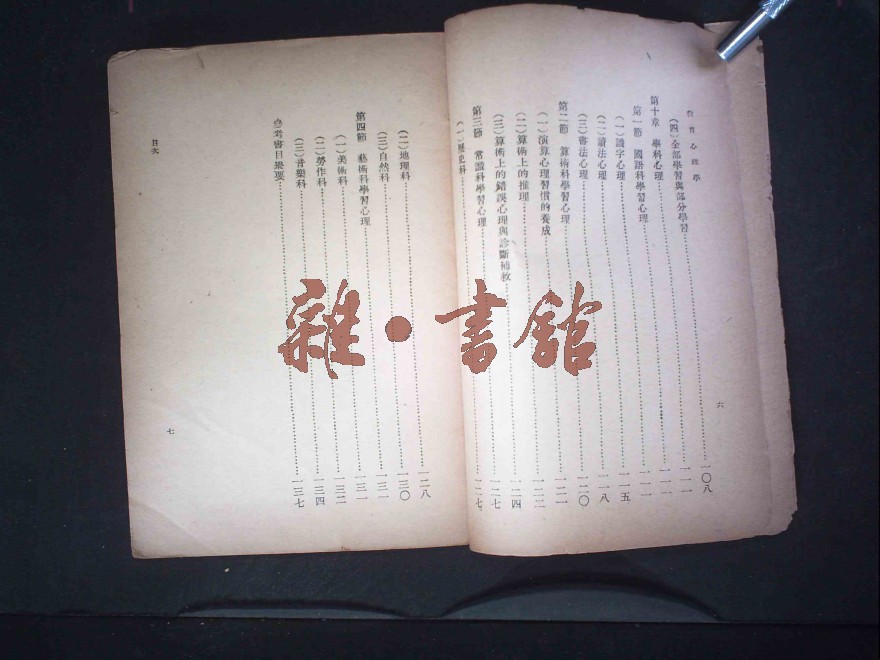 教育心理學
六
(四)全部學習與部分學習……一〇八
第十章 學科心理……一一一
第一節 國語科學習心理……一一一
(一)識字心理……一一一
(二)讀法心理……一一五
(三)書法心理……一一八
第二節 算術科學習心理……一二〇
(一)演算心理習慣的養成……一二一
(二)算術上的推理……一二二
(三)算術上的錯誤心理與診斷補救……一二四
第三節 常識科學習心理……一二七
(一)歷史科……一二七
(二)地理科……一二八
(三)自然科……一三〇
第四節 藝術科學習心理……一三一
(一)美術科……一三一
(二)勞作科……一三二
(三)音樂科……一三四
參考書目舉要……一三七
目次
七
雜•書館